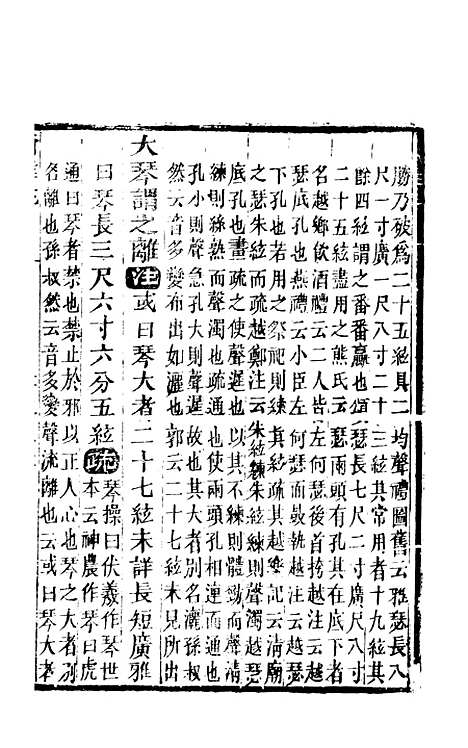 勝乃破爲二十五絃具二均聲禮圖舊云雅瑟長八
尺一寸廣一尺八寸二十三絃其常用者十九絃其
餘四絃謂之番番贏也頌瑟長七尺二寸廣尺八寸
二十五絃盡用之熊氏云瑟兩頭有孔其在底下者
名越鄉飲酒禮云二人皆左何瑟後首挎越注云越
瑟底孔也燕禮云小臣左何瑟面鼓執越注云越瑟
下孔也若用之祭祀則練其絃疏其越樂記云清廟
之瑟朱絃而疏越鄭注云朱絃練朱絃練則聲濁越瑟
底孔也畫疏之使聲遲也以其不練則體勁而聲清
練則絲熟而聲濁也疏通也使兩頭孔相連而通也
孔小則聲急孔大則聲遲故也其大者別名灑孫叔
然云音多變布出如灑也郭云二十七絃未見所出
大琴謂之離注或曰琴大者二十七絃未詳長短廣雅
曰琴長三尺六寸六分五絃疏琴操曰伏羲作琴世
本云神農作琴曰虎
通曰琴者禁也禁止於邪以正人心也琴之大者別
名離也孫叔然云音多變聲流離也云或曰琴大者